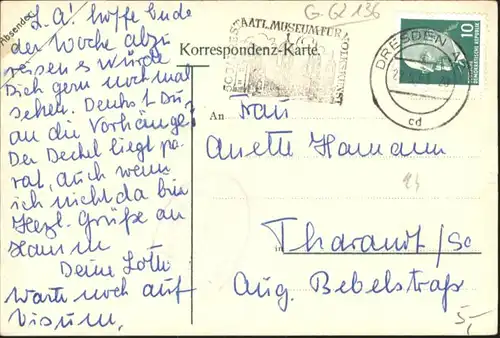 Absender
L. A! hoffe Ende
der Woche abzu
reisen es würde
Dich gern nochmal
sehen. Denkst Du
an die Vorhänge?
Der Deckel liegt pa-
rat, auch wenn
ich nicht da bin
Herzl. Grüße an
Deine Lotte
Warte noch auf
Visum,
G-GZ 136
STAATL. MUSEUM FÜR VOLKSKUNST
Korrespondenz-Karte.
DRESDEN A
cd
10
DEUTSCHE DEMOKRATISCHE REPUBLIK
An
Frau
Anette Hamann
24
in
Tharandt/Sa
Aug. Bebelstraße
5,-